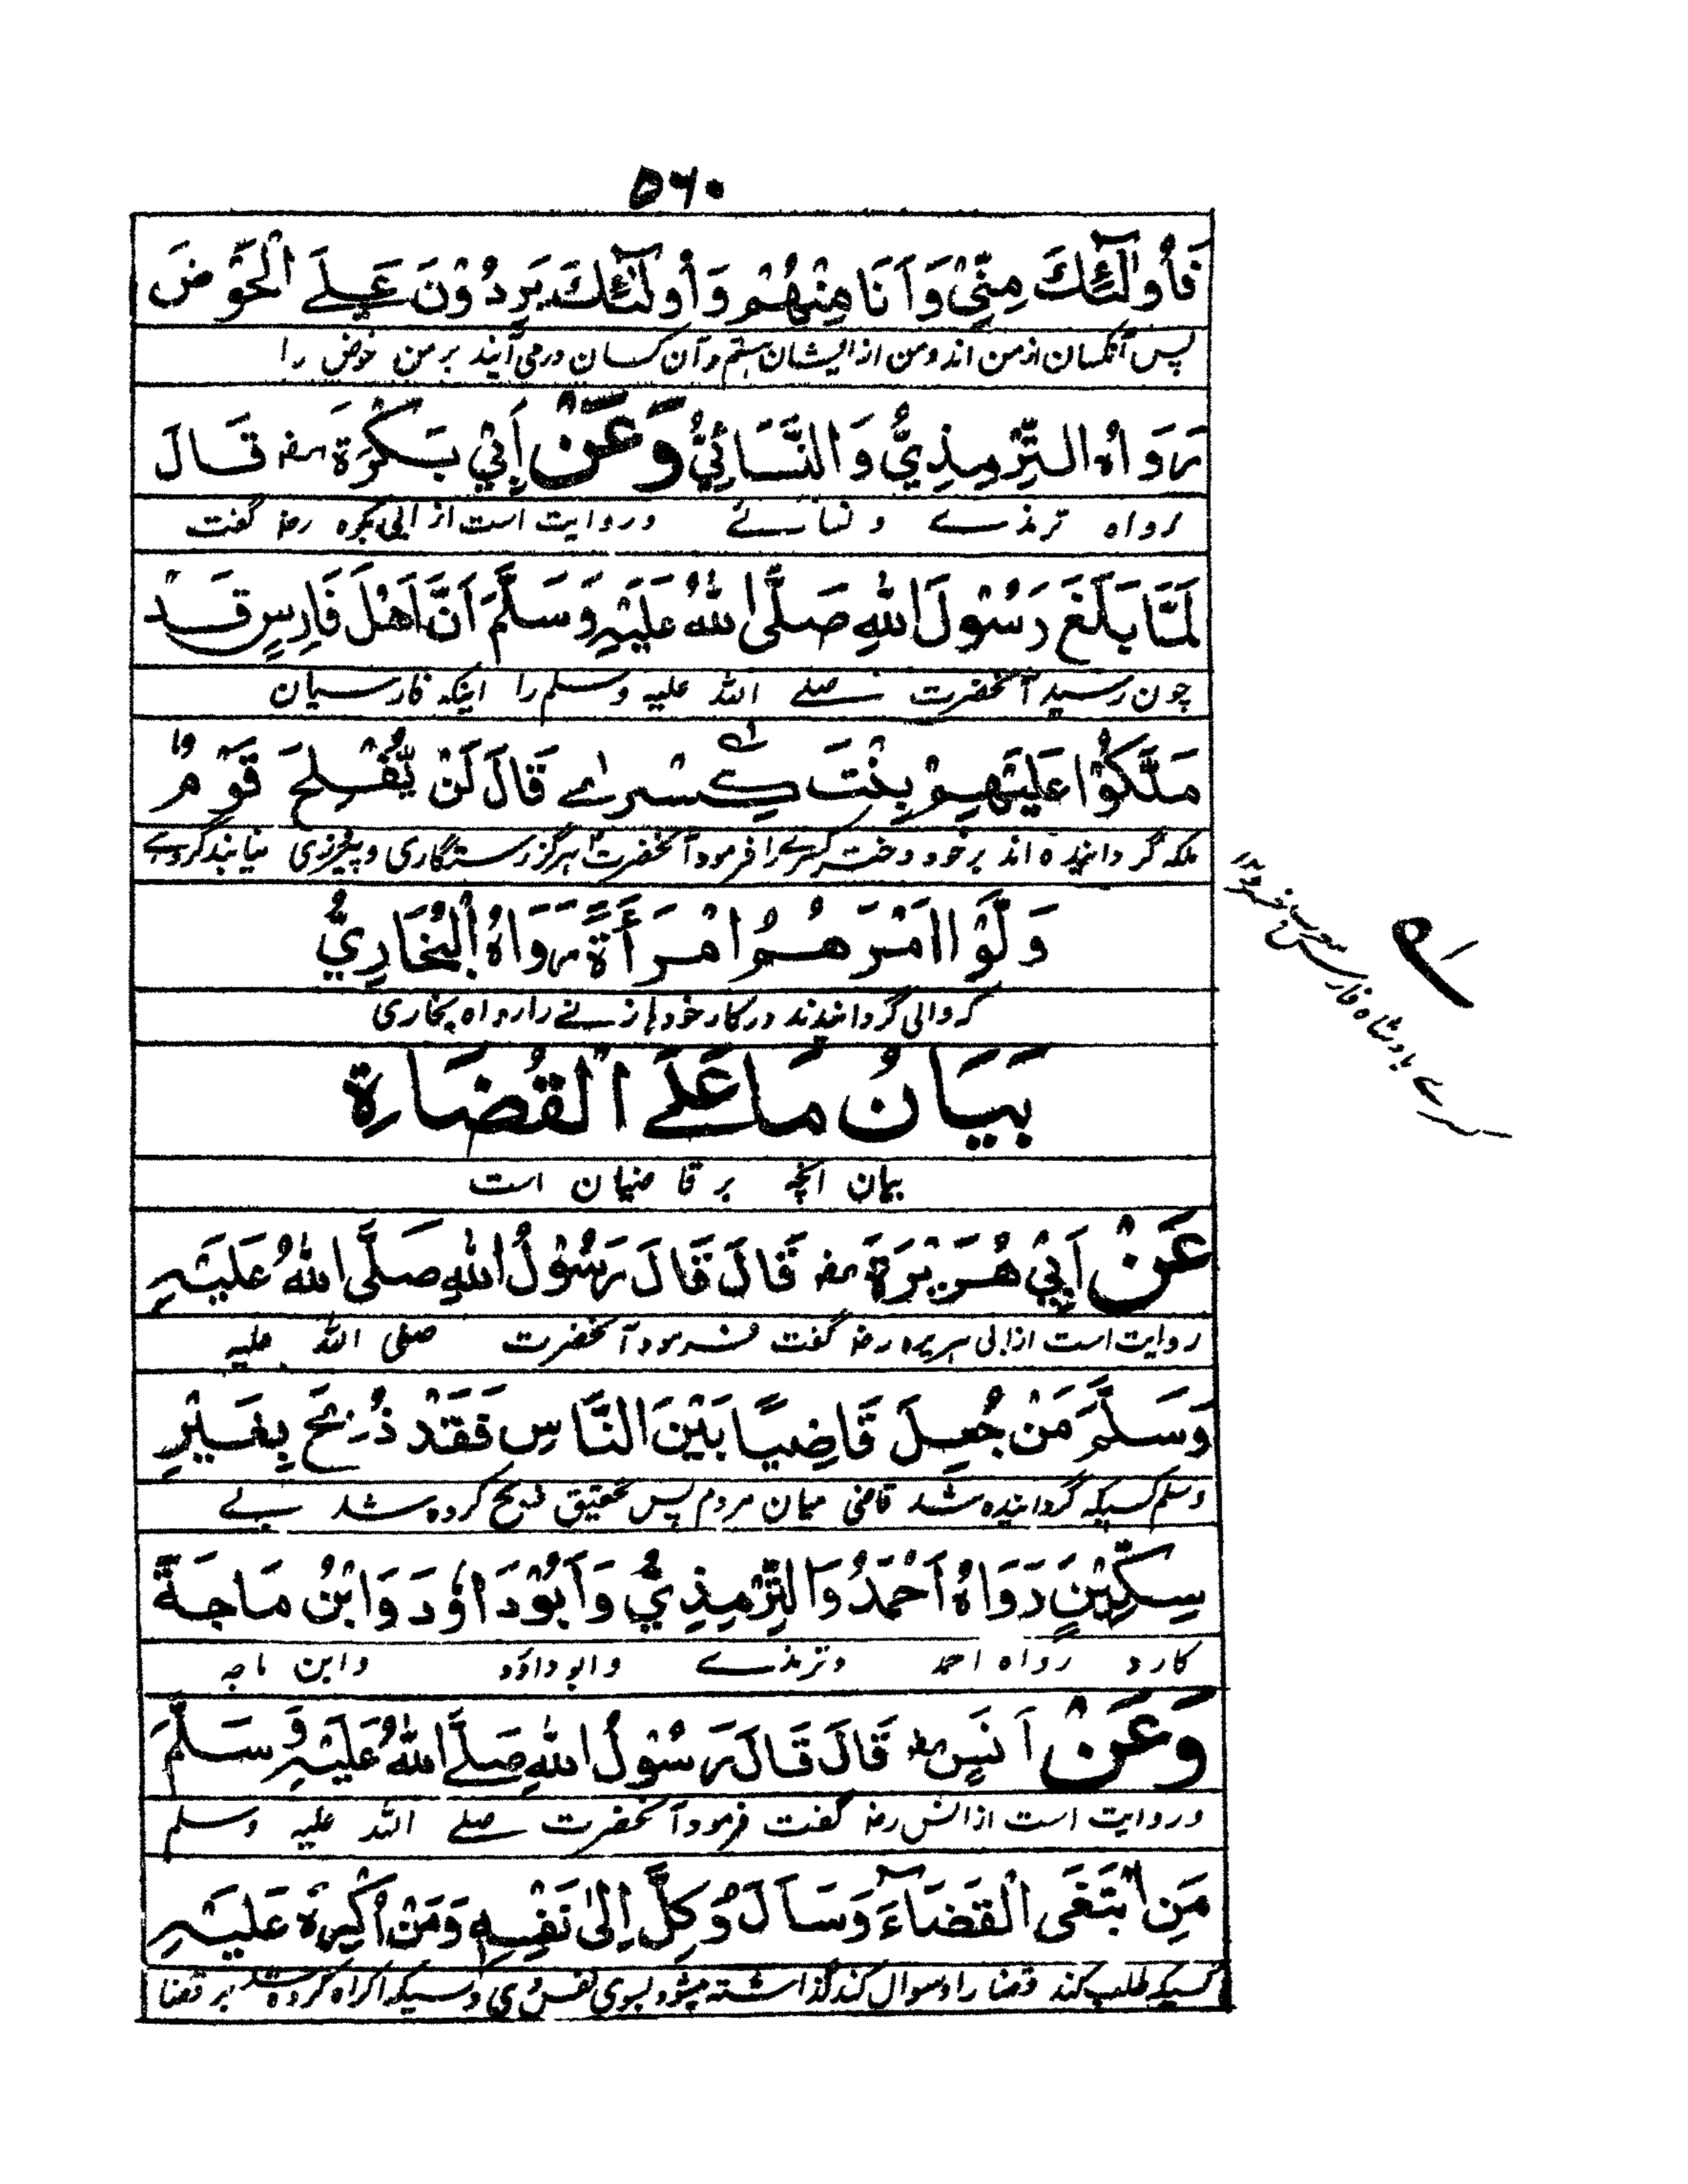 ۵۶۰
فَأُولَٰٓئِكَ مِنِّيْ وَاَنَا مِنْهُمْ وَاُولٰٓئِكَ يَرِدُوْنَ عَلَے الْحَوْضَ
پس آنکسان از من اند و من از ایشان ہستم و آن کسان درمی آیند بر من حوض را
رَوَاهُ التِّرْمِذِيُّ وَالنَّسَائِيُّ وَعَنْ أَبِيْ بَكْرَةَ رضه قَالَ
رواه ترمذے و نسائے و روایت است از ابی بکره رضه گفت
لَمَّا بَلَغَ رَسُوْلَ اللهِ صَلَّى اللهُ عَلَيْهِ وَسَلَّمَ اَنَّ اَهْلَ فَارِسٍ قَدْ
چون رسید آنحضرت صلے الله علیه وسلم را اینکه فارسیان
مَلَّكُوْا عَلَيْهِمْ بِنْتَ كِسْرٰے قَالَ لَنْ يُّفْلِحَ قَوْمٌ
ملکه گردانیده اند بر خود دختر کسرے را فرمود آنحضرت ہرگز رستگاری و پیروزی نیابند گروہے
وَلَّوْا اَمْرَهُمُ امْرَأَةً رَوَاهُ الْبُخَارِيُّ
که والی گردانیدند در کار خودہا زنے را رواه بخاری
بَيَانُ مَا عَلَے الْقُضَاةِ
بیان انچه بر قاضیان است
عَنْ اَبِيْ هُرَيْرَةَ رضه قَالَ قَالَ رَسُوْلُ اللهِ صَلَّى اللهُ عَلَيْهِ
روایت است از ابی ہریره رضه گفت فرمود آنحضرت صلی الله علیه
وَسَلَّمَ مَنْ جُعِلَ قَاضِيًا بَيْنَ النَّاسِ فَقَدْ ذُبِحَ بِغَيْرِ
وسلم کسیکه گردانیده شد قاضی میان مردم پس تحقیق ذبح کرده شد بے
سِكِّيْنٍ رَوَاهُ اَحْمَدُ وَالتِّرْمِذِيُّ وَاَبُوْدَاوٗدَ وَابْنُ مَاجَةَ
کارد رواه احمد و ترمذے و ابو داؤد و ابن ماجه
وَعَنْ اَنَسٍ رضه قَالَ قَالَ رَسُوْلُ اللهِ صَلَّے اللهُ عَلَيْهِ وَسَلَّمَ
و روایت است از انس رضه گفت فرمود آنحضرت صلے الله علیه وسلم
مَنِ ابْتَغَى الْقَضَاءَ وَسَاَلَ وُكِلَ اِلٰى نَفْسِهٖ وَمَنْ اُكْرِهَ عَلَيْهِ
کسیکه طلب کند قضا را و سوال کند گذاشته میشود بسوی نفس وی و کسیکه اکراه کرده شد بر قضا
کسرے بادشاه فارس